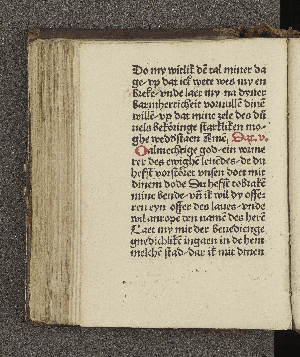 Do my witlik dē tal miner da
ge · vp dat ick wete wes my en
breke · vnde laet my na dyner
barmherticheit voruullē dinē
wille · vp dat mine zele des dū
uels bekoringe starkliken mo-
ghe wedd'staen Amē, Dat · v ·
O almechtige god · ein vorme
rer des ewighē leuēdes · de du
hefst vorstoret vnsen doet mit
dinem dode Du hefst tobrakē
mine bende · vn̄ ik wil dy offe-
ren eyn offer des laues · vnde
wil anropē den namē des herē
Laet my mit der benediēge
gnedichlikē ingaen in de hem
melschē stad · dar ik mit dinen